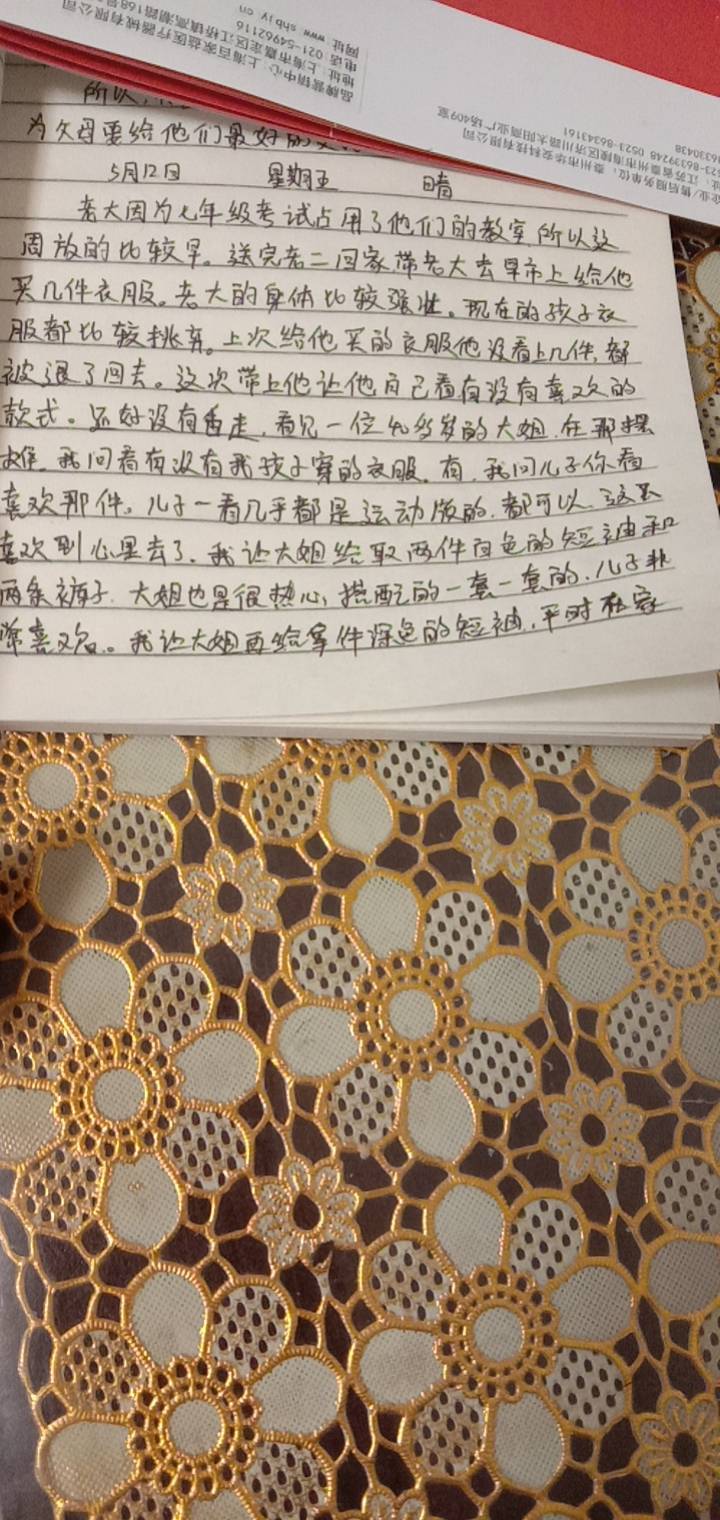 品牌营销中心：上海百家益医疗器械有限公司
地址：上海市嘉定区江桥镇高潮路168号
电话：021-54962116
网址：www.shbjy.cn
企业/售后服务单位：泰州市华安科技有限公司
江苏省泰州市海陵区济川路太阳商业广场409室
86339248 0523-86343161
86330438
所以，
为父母要给他们最好的
5月12日 星期五 晴
老大因为七年级考试占用了他们的教室所以这
周放的比较早。送完老二回家带老大去早市上给他
买几件衣服。老大的身体比较强壮。现在的孩子衣
服都比较挑弃。上次给他买的衣服他没看上几件,都
被退了回去。这次带上他让他自己看有没有喜欢的
款式。还好没有白走,看见一位的大姐,在那摆
摊。我问看有没有我孩子穿的衣服。有,我问儿子你看
喜欢那件。儿子一看几乎都是运动版的,都可以,
喜欢到心里去了。我让大姐给取两件白色的短袖和
两条裤子。大姐也是很热心,搭配的一套一套的,儿子非
常喜欢。我让大姐再给拿件深色的短袖,平时在家